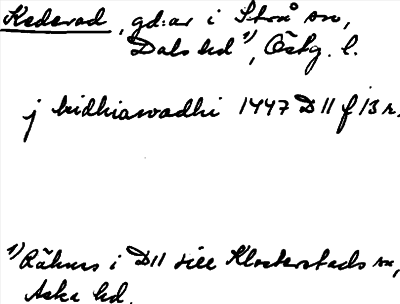 Kedevad, gd:ar i Strå sn,
Dals hd 1), Östg. l.
j kidhiawadhi 1447 D 11 f 13 r.
1) Räknas i D 11 till Klosterstads sn,
Aska hd.